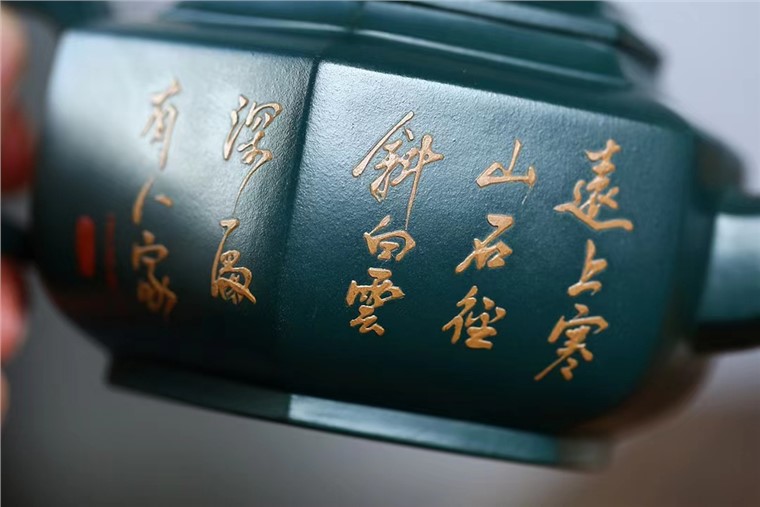 遠上寒
山石徑
斜白雲
深處
有人家